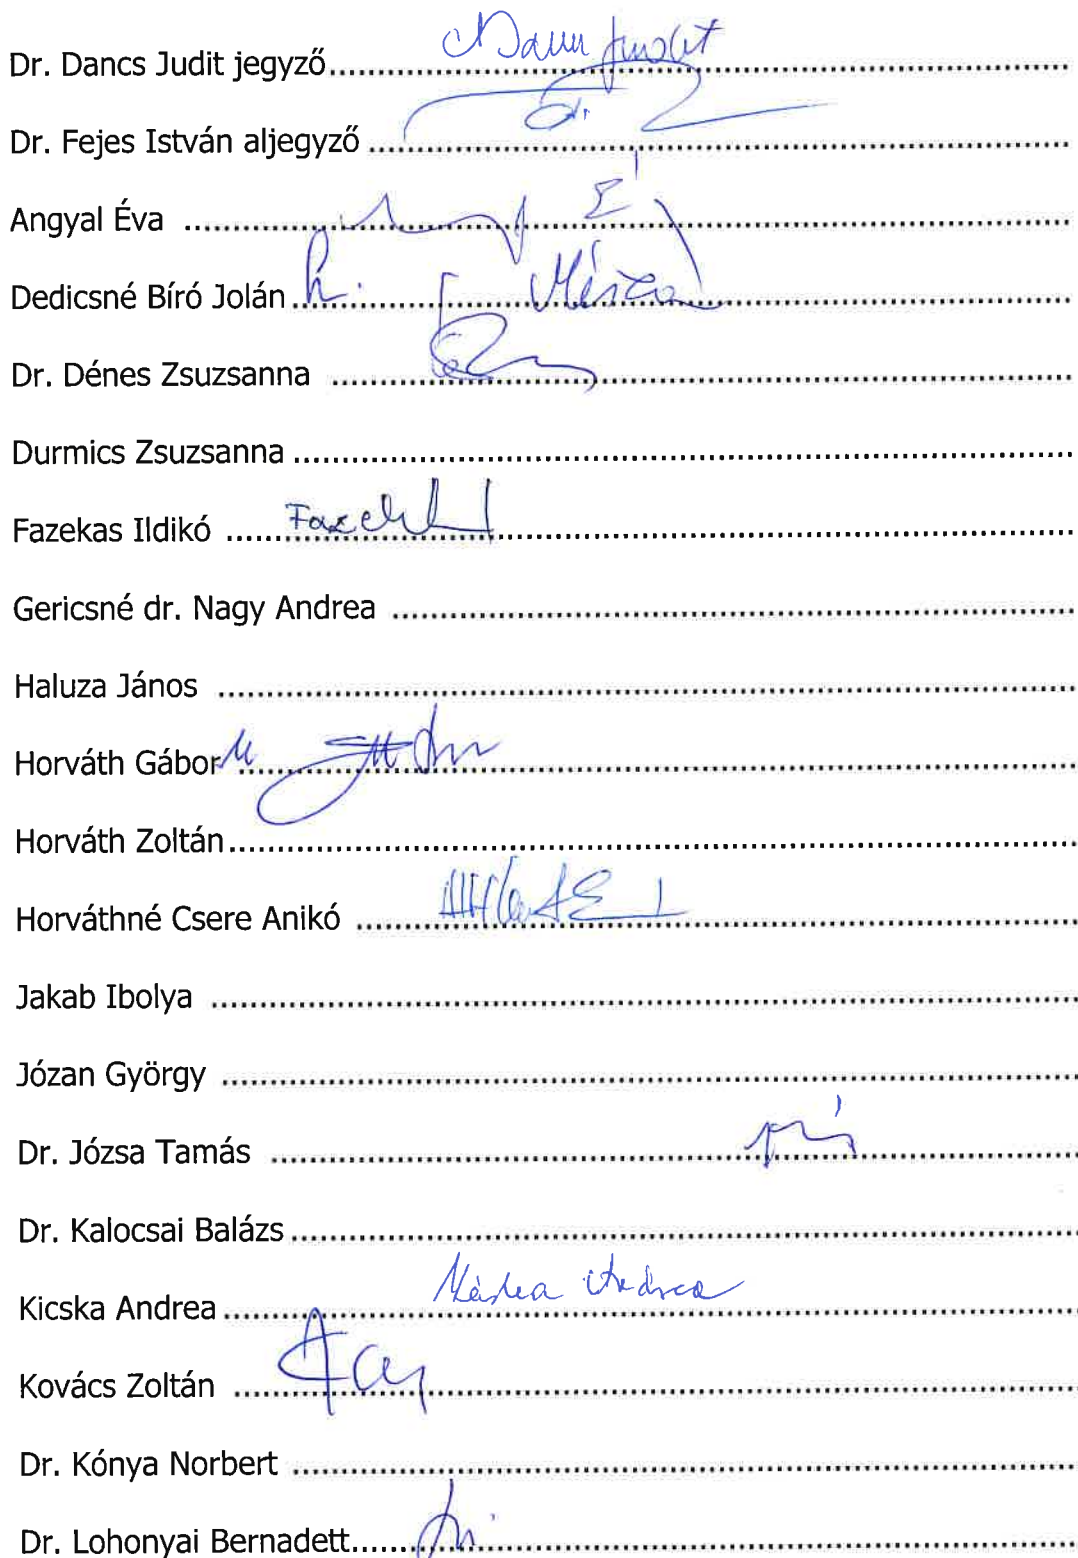 Dr. Dancs Judit jegyző
Dr. Fejes István aljegyző
Angyal Éva
Dedicsné Bíró Jolán
Dr. Dénes Zsuzsanna
Durmics Zsuzsanna
Fazekas Ildikó
Gericsné dr. Nagy Andrea
Haluza János
Horváth Gábor
Horváth Zoltán
Horváthné Csere Anikó
Jakab Ibolya
Józan György
Dr. Józsa Tamás
Dr. Kalocsai Balázs
Kicska Andrea
Kovács Zoltán
Dr. Kónya Norbert
Dr. Lohonyai Bernadett